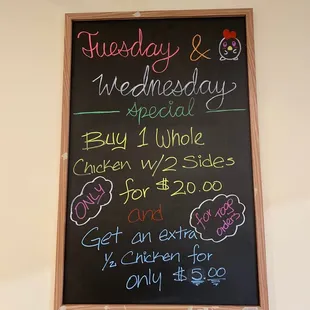 Tuesday &
Wednesday
special
Buy 1 Whole
Chicken w/2 Sides
for $20.00
ONLY
and
for Togo
orders
Get an extra
1/2 Chicken for
only $5.00